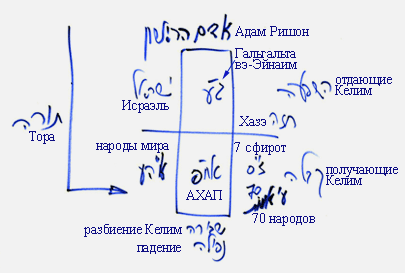 אדם הראשון Адам Ришон
Гальгальта
вэ-Эйнаим
ישראל
Исраэль
ג"ע
отдающие
Келим
השפעה
תורה
Тора
Хазэ חזה
народы мира
7 сфирот
אח"פ
АХАП
ז"ס
70
קבלה
получающие
Келим
70 народов
разбиение Келим שבירה
падение נפילה